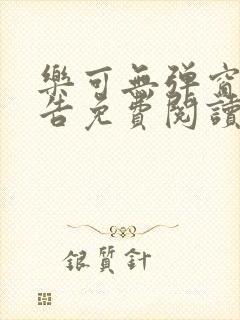 樂可無弹窗
告免費閱讀
銀質針